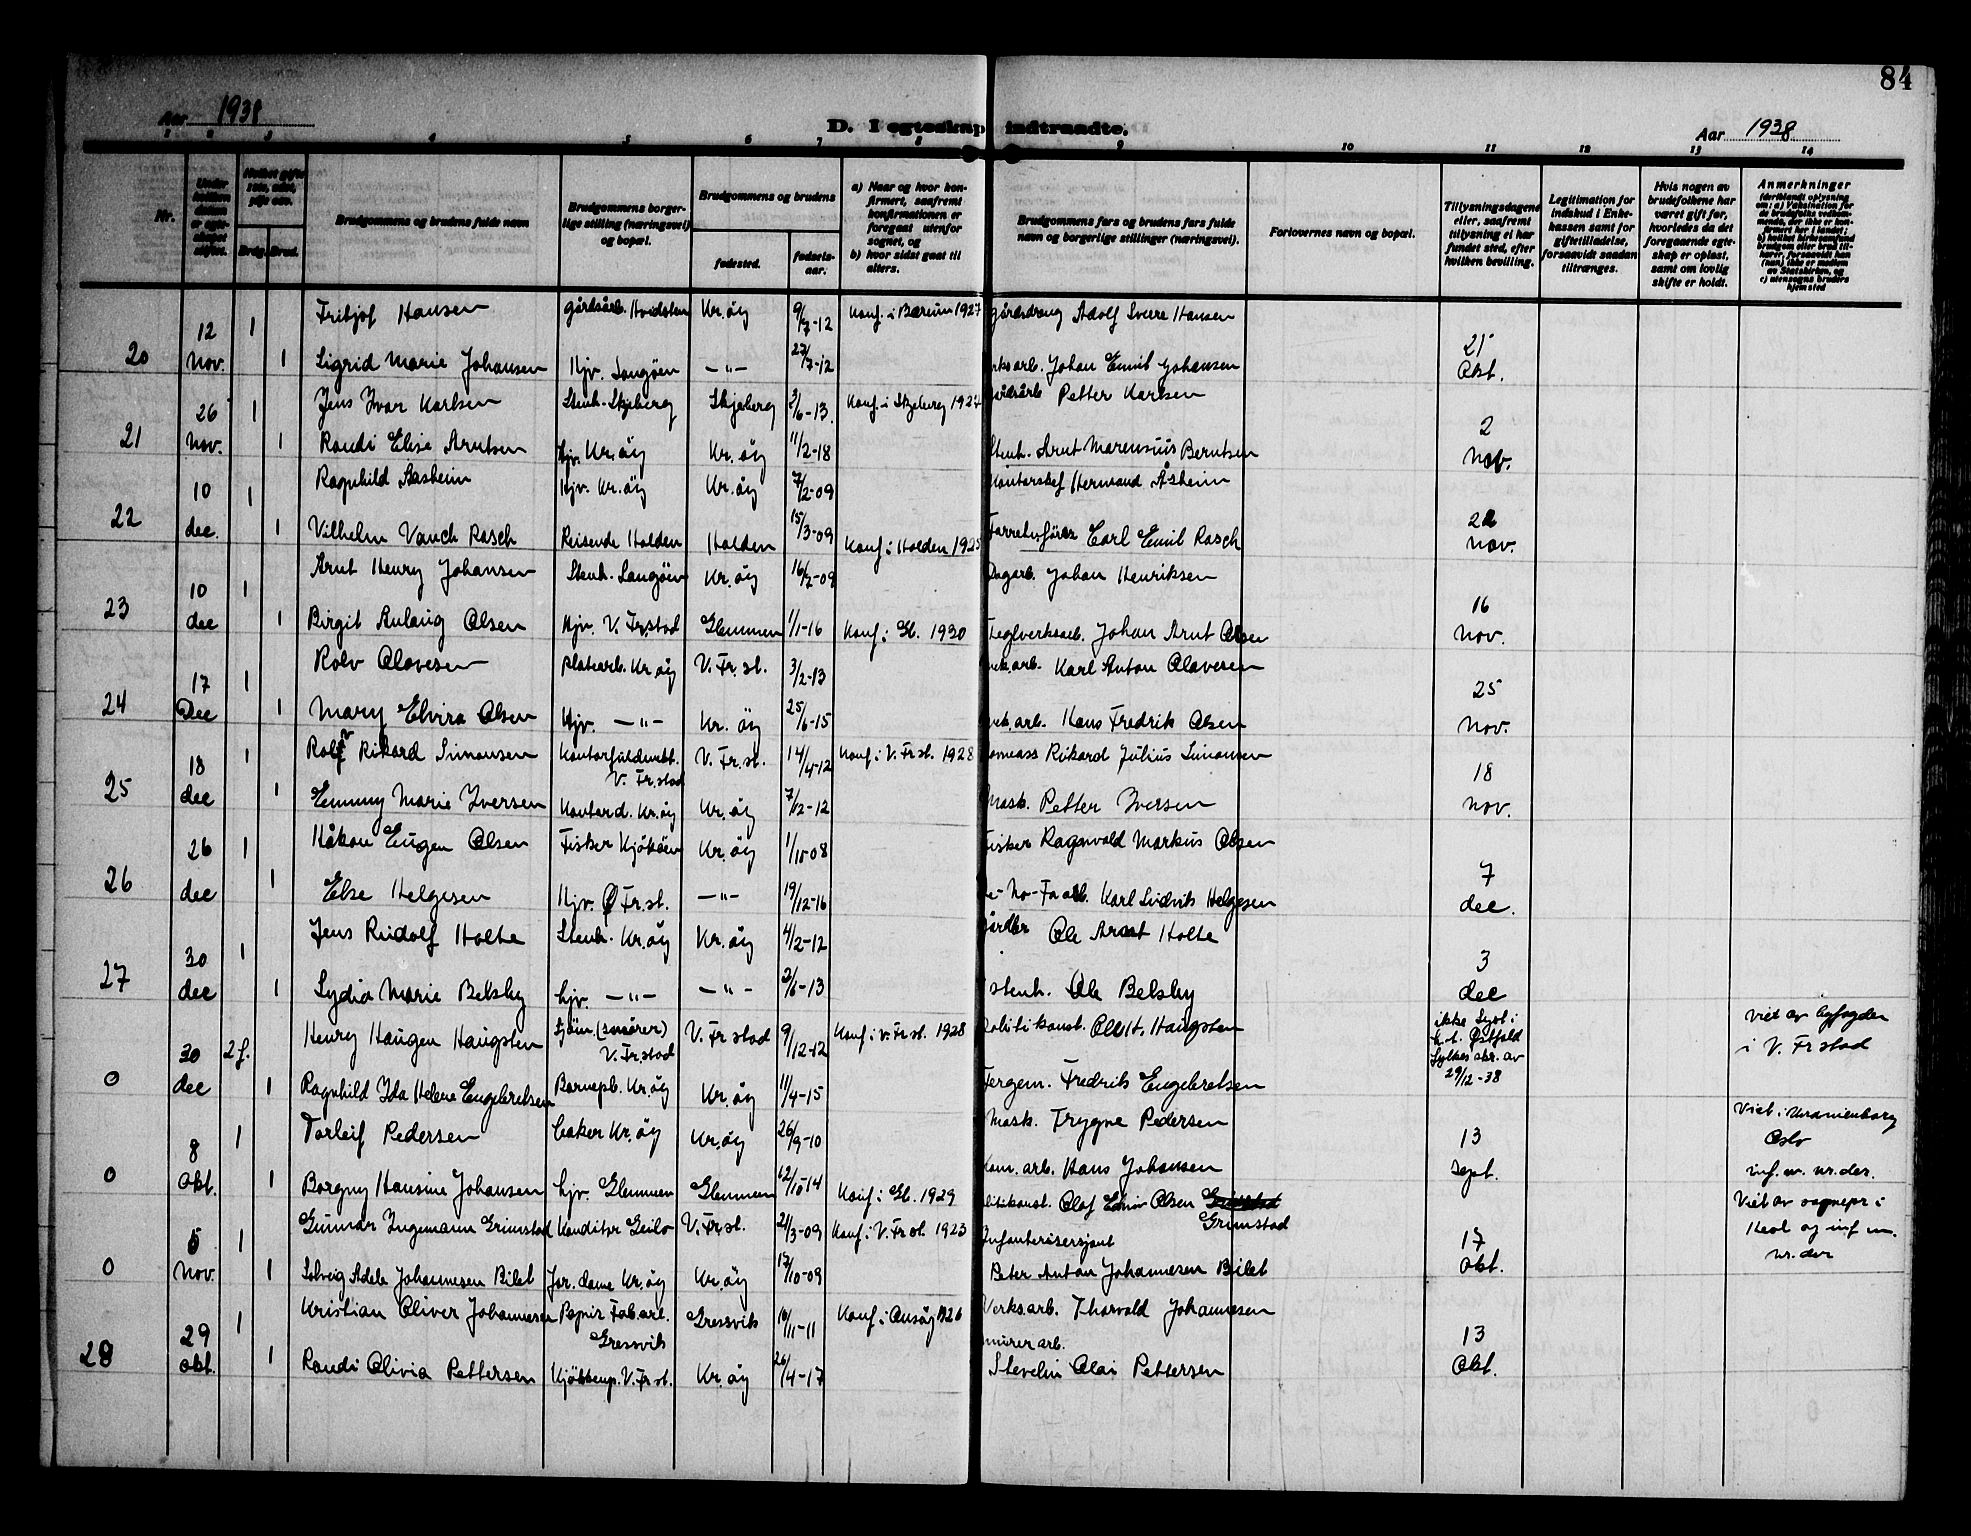 84
Aar 1938
D. I egteskap indtraadte.
Aar 1938
1 2 3 4 5 6 7 8 9 10 11 12 13 14
Nr.
Hvilket gifte
1ste, 2det,
Brudg. Brud.
Brudgommens og brudens fulde navn
Brudgommens borger-
lige stilling (næringsvei)
og bopæl.
Brudgommens og brudens
fødested.
fødsels-
aar.
a) Naar og hvor kon-
firmert, saafremt
konfirmationen er
foregaat utenfor
sognet, og
b) hvor sidst gaat til
alters.
Brudgommens fars og brudens fars fulde
navn og borgerlige stillinger (næringsvei).
Forlovernes navn og bopæl.
Tillysningsdagene
eller, saafremt
tillysning ei har
fundet sted, efter
hvilken bevilling.
Legitimation for
indskud i Enke-
kassen samt for
giftetilladelse,
forsaavidt saadan
tiltrænges.
Hvis nogen av
brudefolkene har
været gift før,
hvorledes da det
foregaaende egte-
skap er opløst,
samt om lovlig
skifte er holdt.
Anmerkninger
(deriblandt oplysning
om: a) Vaksination for
de brudefolks vedkom-
mende, der ikke er kon-
firmert her i landet;
b) hvilket kirkesamfund
brudgom eller brud til-
hører, forsaavidt han
(hun) ikke er medlem
av Statskirken, og
c) utensogns bruders
hjemsted
20 12 nov. 1 Fritjof Hansen gårdsarb. Hvidsten Kr.øy 9/7-12 Konf. i Bærum 1927 gårdsdreng Adolf Sverre Hansen 21 Okt.
1 Sigrid Marie Johansen Hjv. Langøen —"— 27/7-12 Johan Emil Johansen
21 26 nov. 1 Jens Ivar Karlsen Stenh. Skjeberg Skjeberg 3/6-13. Konf. i Skjeberg 1927 Petter Karlsen 2 nov.
1 Randi Elise Arntsen Hjv. Kr.øy Kr.øy 11/2-18 Stenh. Arnt Marensius Berntsen
22 10 dec. 1 Ragnhild Aasheim Hjv. Kr.øy Kr.øy 7/2-09 Kontorsjef Hermand Åsheim 22 nov.
1 Vilhelm Vauch Rasch Reisende Halden Halden 15/3-09 Konf. i Halden 1925 Forretn.fører Carl Emil Rasch
23 10 dec 1 Arnt Henry Johansen Stenh. Langøen Kr.øy 16/2-09 Dagarb. Johan Henriksen 16 nov.
1 Birgit Aulaug Olsen Hjv. V. Fr.stad Glemmen 1/1-16 Konf. i Gl. 1930 Teglverksarb. Johan Arnt Olsen
24 17 Dec 1 Rolv Olavesen platearb. Kr.øy V. Fr.st. 3/2-13 Karl Anton Olavesen 25 nov.
1 Mary Elvira Olsen Hjv. —"— Kr. øy 25/6-15 Hans Fredrik Olsen
25 18 dec 1 Rolf Rikard Simonsen Kontorfuldmekt. V. Fr.stad V. Fr.st. 14/4-12 Konf. i V. Fr.st. 1928 Rikard Julius Simonsen 18 nov.
1 Emmy Marie Iversen Kontord. Kr.øy Kr.øy 7/12-12 Mask. Petter Iversen
26 26 dec 1 Håkon Eugen Olsen Fisker Kjøkøen Kr.øy 1/10-08 Fisker Ragnvald Markus Olsen 7 dec.
1 Else Helgesen Hjv. Ø Fr.st. —"— 19/12-16 Karl Ludvik Helgesen
27 30 dec 1 Jens Rudolf Holte Stenh. Kr.øy Kr.øy 4/2-12 Ole Arnt Holte 3 dec
1 Lydia Marie Belsby hjv. —"— —"— 2/6-13 stenh. Ole Belsby
0 30 dec 2 f. Henry Haugen Haugsten Sjøm. (smører) V. Fr.stad V. Fr stad 9/12-12 Konf. i V. Fr.st. 1928 Politikonst. Ole H. Haugsten ikke lyst i h.t. Østfold fylkes skr. av 29/12-38 Viet av byfogden i V. Fr stad
1 Ragnhild Ida Helene Engebretsen Barnepl. Kr.øy Kr.øy 11/4-15 Fergem. Fredrik Engebretsen
0 8 okt. 1 Torleif Pedersen baker Kr.øy Kr.øy 26/9-10 Mask. Trygve Pedersen 13 sept. Viet i Uranienborg Oslo inf. m. nr. der.
1 Borgny Hansine Johansen hjv. Glemmen Glemmen 12/10-14 Konf. i Gl. 1929 Kom. arb. Hans Johansen
0 5 nov. 1 Gunnar Ingemann Grimstad Konditor Geilo V. Fr.st. 21/3-09 Konf. i V. Fr.st. 1923 Politikonst. Olaf Edvin Olsen Grimstad 17 okt. Viet av sognepr. i Hol og inf m. nr. der
1 Solveig Adele Johannesen Bilet for. dame Kr.øy Kr.øy 17/10-09 Infanterisersjant Peter Anton Johannesen Bilet
28 29 okt. 1 Kristian Oliver Johannesen Papir Fab.arb. Gressvik Gressvik 10/11-11 Konf. i Onsøy 1926 Verksarb. Thorvald Johannesen 13 Okt.
1 Randi Olivia Pettersen Kjøkkenp. V. Fr.st. Kr.øy 26/4-17 murerarb. Stevelin Olai Pettersen